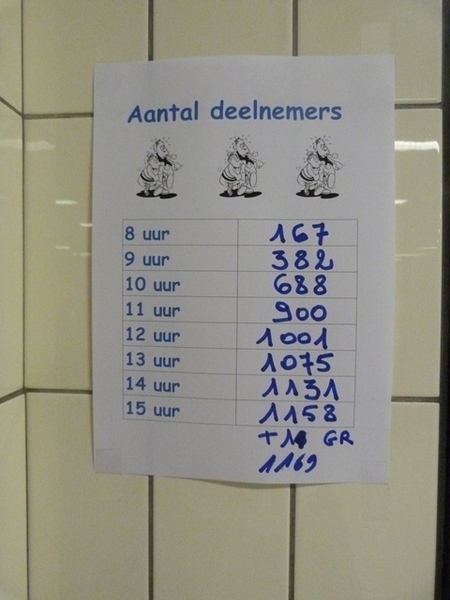 Aantal deelnemers
8 uur 167
9 uur 382
10 uur 688
11 uur 900
12 uur 1001
13 uur 1075
14 uur 1131
15 uur 1158
+ GR
1169